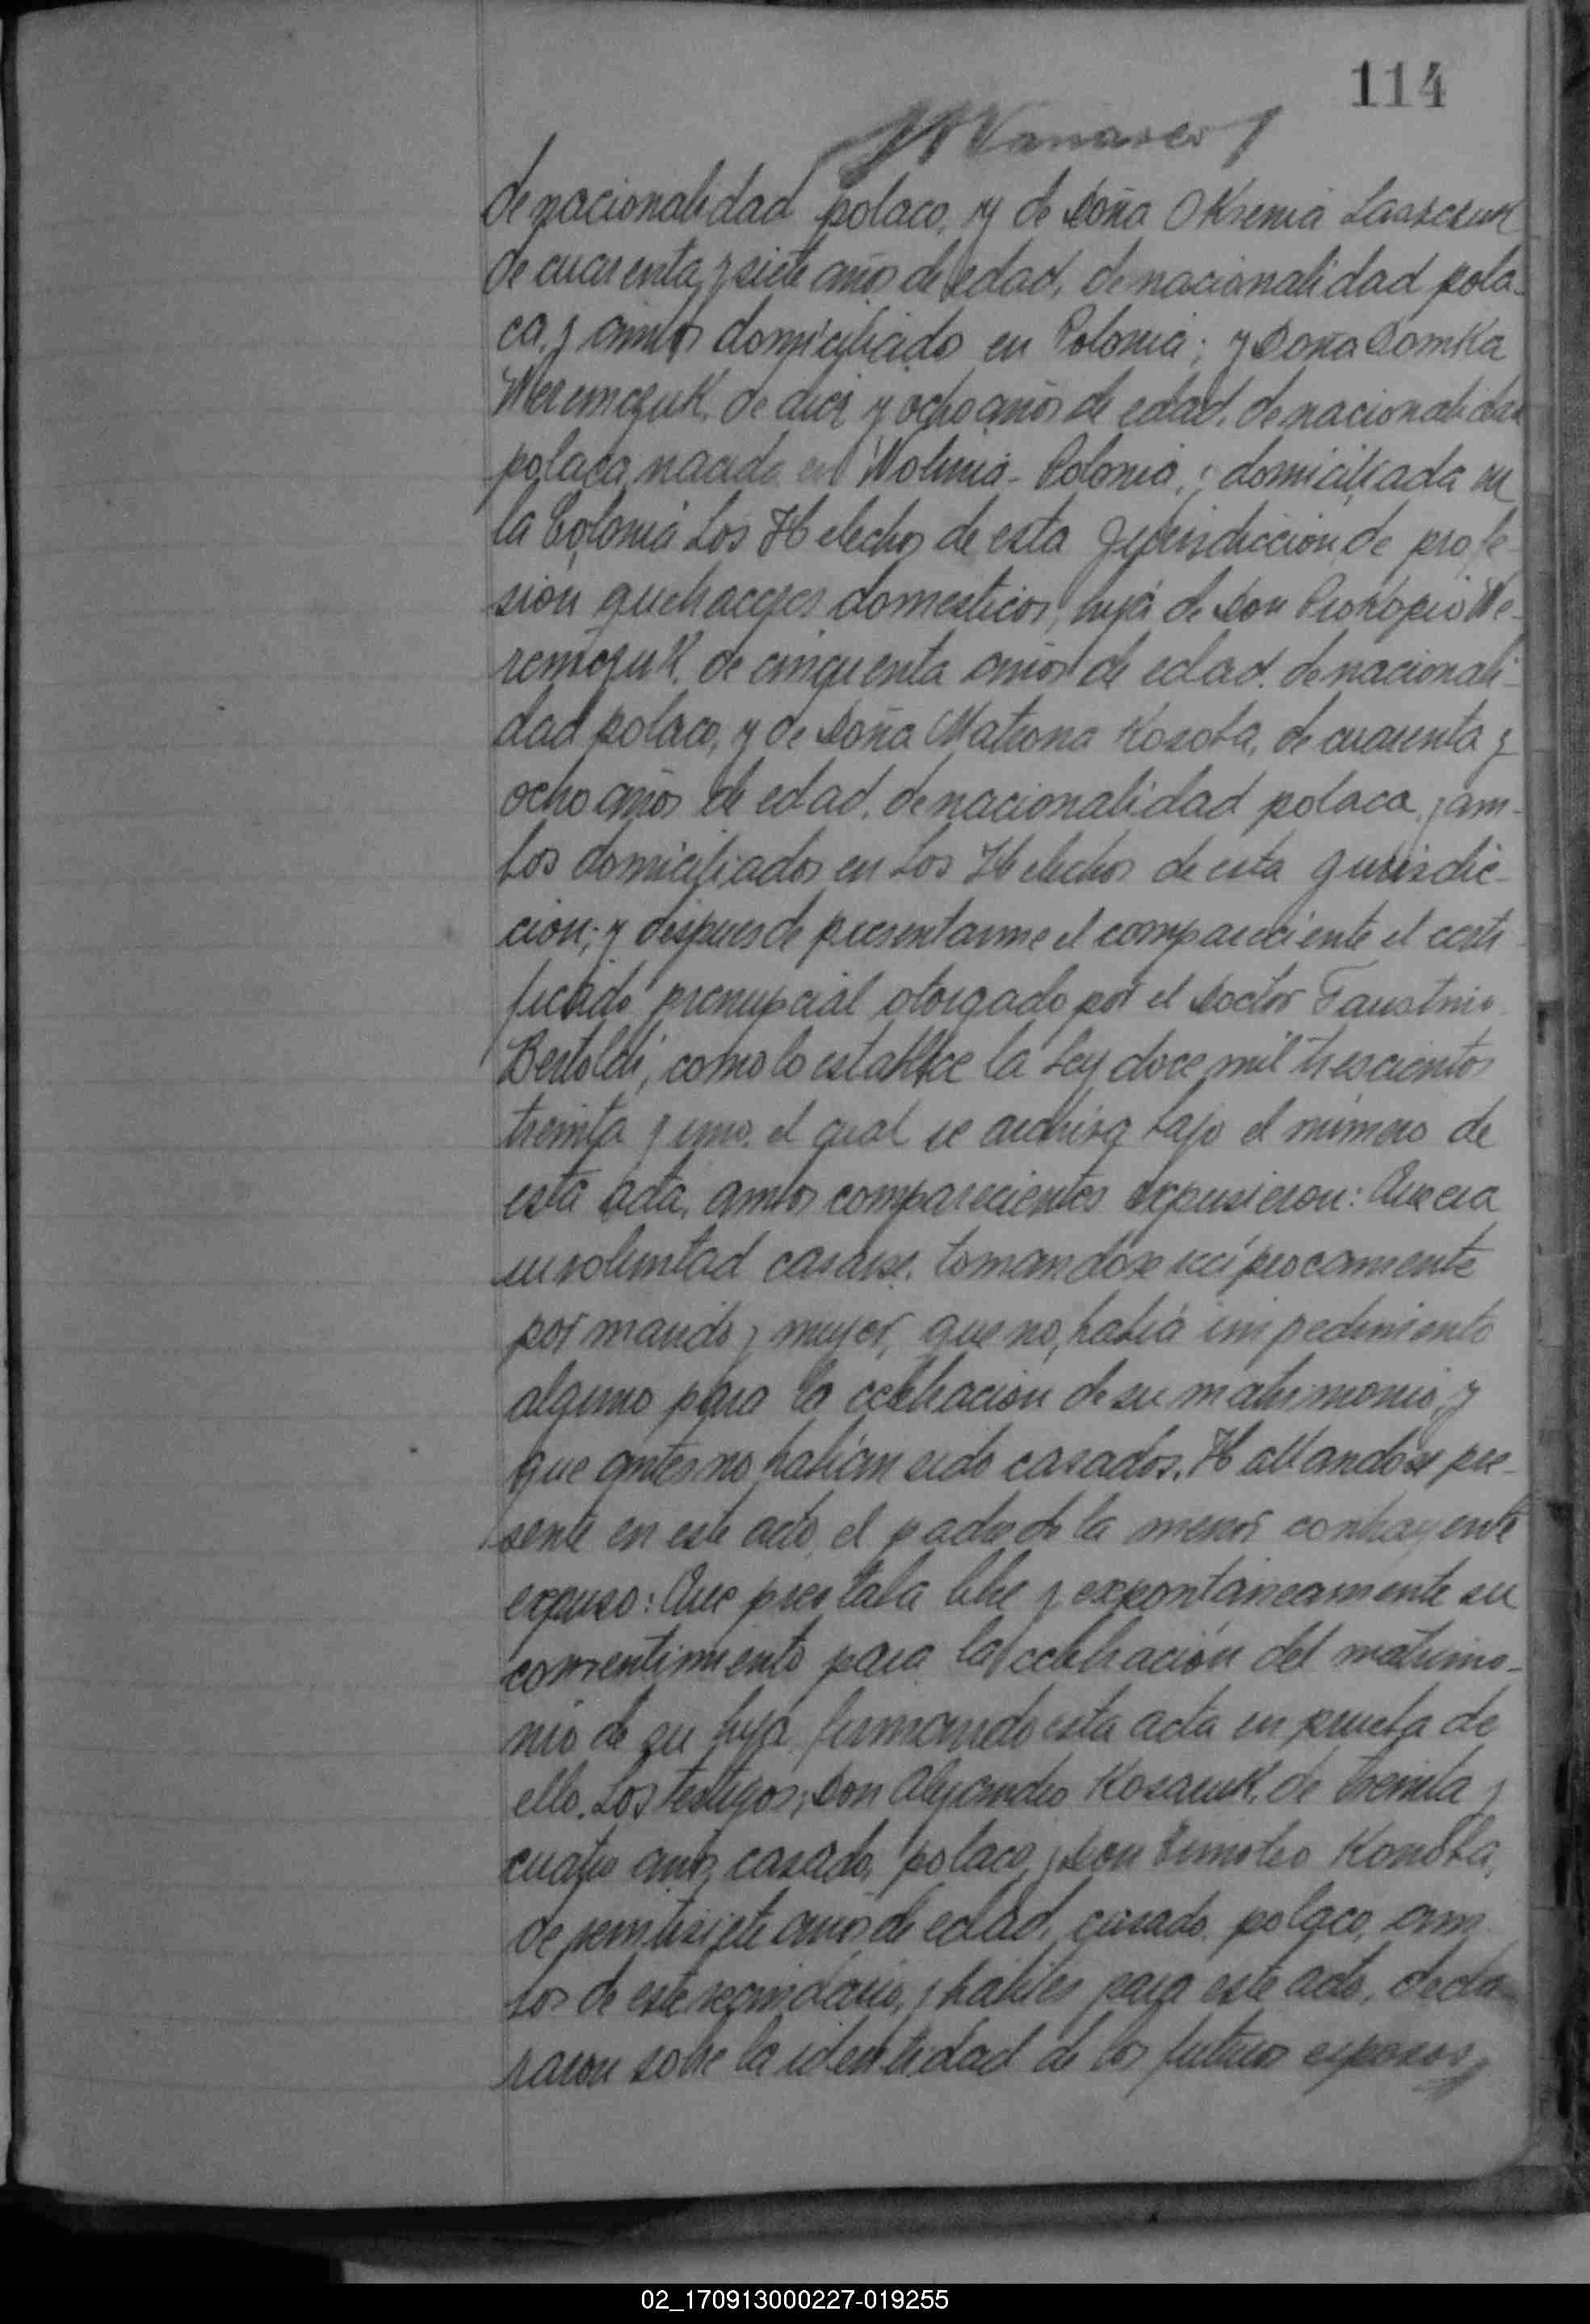 114
de nacionalidad polaco, y de Doña Oksenia Laszczuk
de cuarenta y siete años de edad, de nacionalidad pola-
ca, y ambos domiciliado en Polonia; y Doña Domka
Weremczuk, de diez y ocho años de edad, de nacionalidad
polaca nacida en Wolinia - Polonia, y domiciliada en
la Colonia Los Helechos de esta jurisdicción, de profe-
sión quehaceres domesticos, hija de Don Prokopio We-
remczuk, de cinquenta años de edad, de nacionali-
dad polaco, y de Doña Matrona Kosoba, de cuarenta y
ocho años de edad, de nacionalidad polaca, y am-
bos domiciliados en Los Helechos de esta jurisdic-
ción; y despues de presentarme el compareciente el certi-
ficado prenupcial otorgado por el Doctor Faustino
Bertoldi, como lo establece la Ley doce mil trescientos
treinta y uno, el cual se archiva bajo el número de
esta acta, ambos comparecientes expusieron: Que era
su voluntad casarse, tomandose recíprocamente
por marido y mujer, que no había impedimento
alguno para la celebración de su matrimonio, y
que antes no habían sido casados. Hallandose pre-
sente en este acto, el padre de la menor contrayente
expuso: Que prestaba libre y expontáneamente su
consentimiento para la celebración del matrimo-
nio de su hija, firmando esta acta en prueba de
ello. Los testigos; Don Alejandro Kosaruk, de treinta y
cuatro años, casado, polaco, y Don Timoteo
de veintisiete años de edad, casado, polaco, am-
bos de este vecindario, y hábiles para este acto, decla-
raron sobre la identidad de los futuros esposos y
02_170913000227-019255